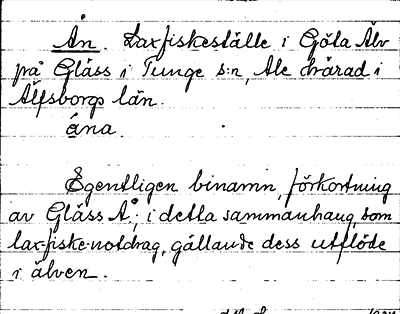 Ån. Laxfiskeställe i Göta Älv
på Gläss i Tunge s:n, Ale härad i
Älfsborgs län.
ána.
Egentligen binamn, förkortning
av Gläss Å, i detta sammanhang, som
laxfiske-notdrag, gällande dess utflöde
i älven.